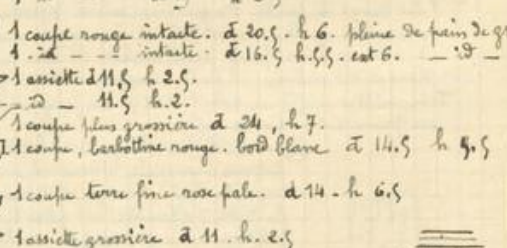 1 coupe rouge intacte. d 20.5. h 6. pleine de pain de
1. id - - - intacte. d 16.5 h.5.5. est 6. _ id _
1 assiette d 11.5 h 2.5.
- id - 11.5 h.2.
1 coupe plus grossière d 24, h 7.
1 coupe, barbottine rouge. bord blanc d 14.5 h 5.5
1 coupe terre fine rose pale. d 14 - h 6.5
1 assiette grossière d 11. h. 2.5